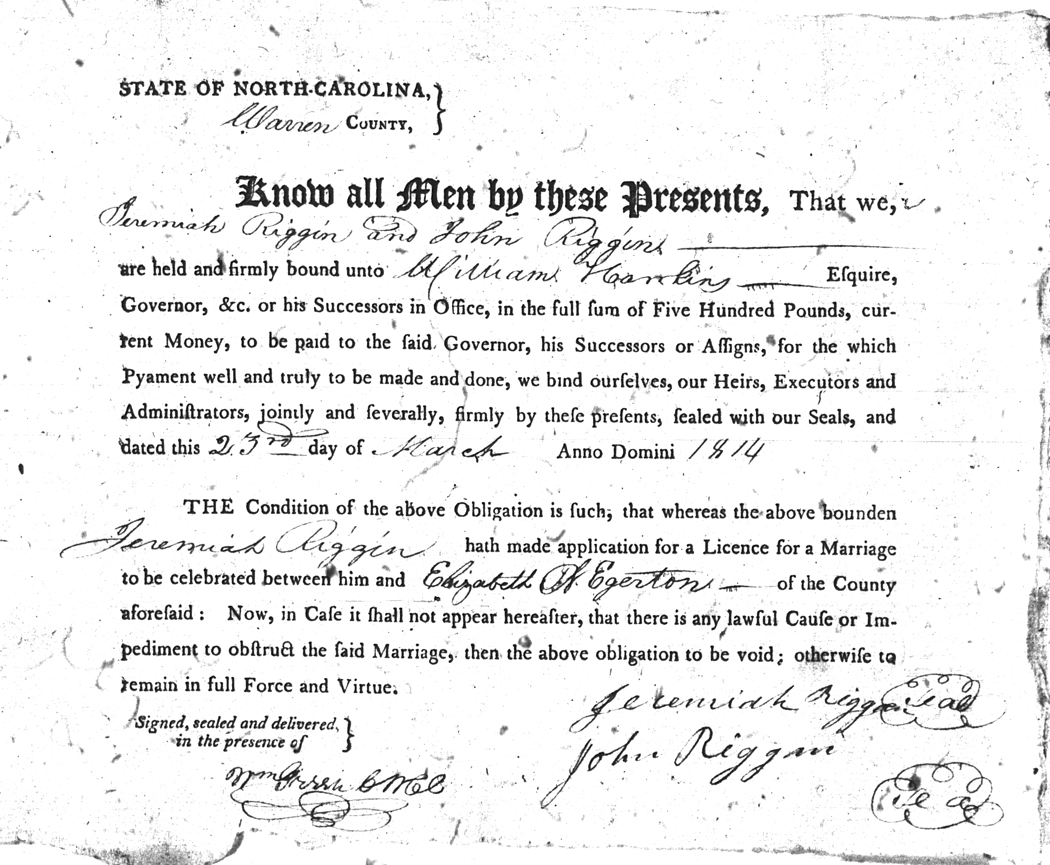 STATE OF NORTH-CAROLINA,
Warren COUNTY,
Know all Men by these Presents, That we,
Jeremiah Riggin and John Riggin
are held and firmly bound unto William Hawkins Eſquire,
Governor, &c. or his Succeſſors in Office, in the full ſum of Five Hundred Pounds, cur-
rent Money, to be paid to the ſaid Governor, his Succeſſors or Aſſigns, for the which
Pyament well and truly to be made and done, we bind ourſelves, our Heirs, Executors and
Adminiſtrators, jointly and ſeverally, firmly by theſe preſents, ſealed with our Seals, and
dated this 23rd day of March Anno Domini 1814
THE Condition of the above Obligation is ſuch, that whereas the above bounden
Jeremiah Riggin hath made application for a Licence for a Marriage
to be celebrated between him and Elizabeth Egerton of the County
aforeſaid : Now, in Caſe it ſhall not appear hereafter, that there is any lawful Cauſe or Im-
pediment to obſtruct the ſaid Marriage, then the above obligation to be void; otherwiſe to
remain in full Force and Virtue.
Jeremiah Riggin Seal
Signed, sealed and delivered,
in the presence of
John Riggin
Seal
Wm Green